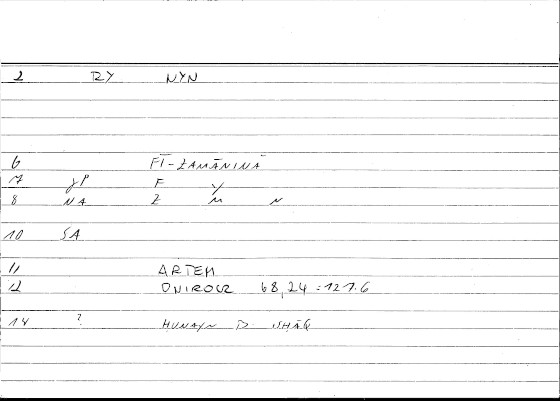 2 RY NYN
6 FĪ-ZAMĀNINĀ
7 yP F y
8 NA Z M N
10 SA
11 ARTEM
12 ONIROCR 68,24 = 121.6
14 ? HUNAYN B ISHĀQ